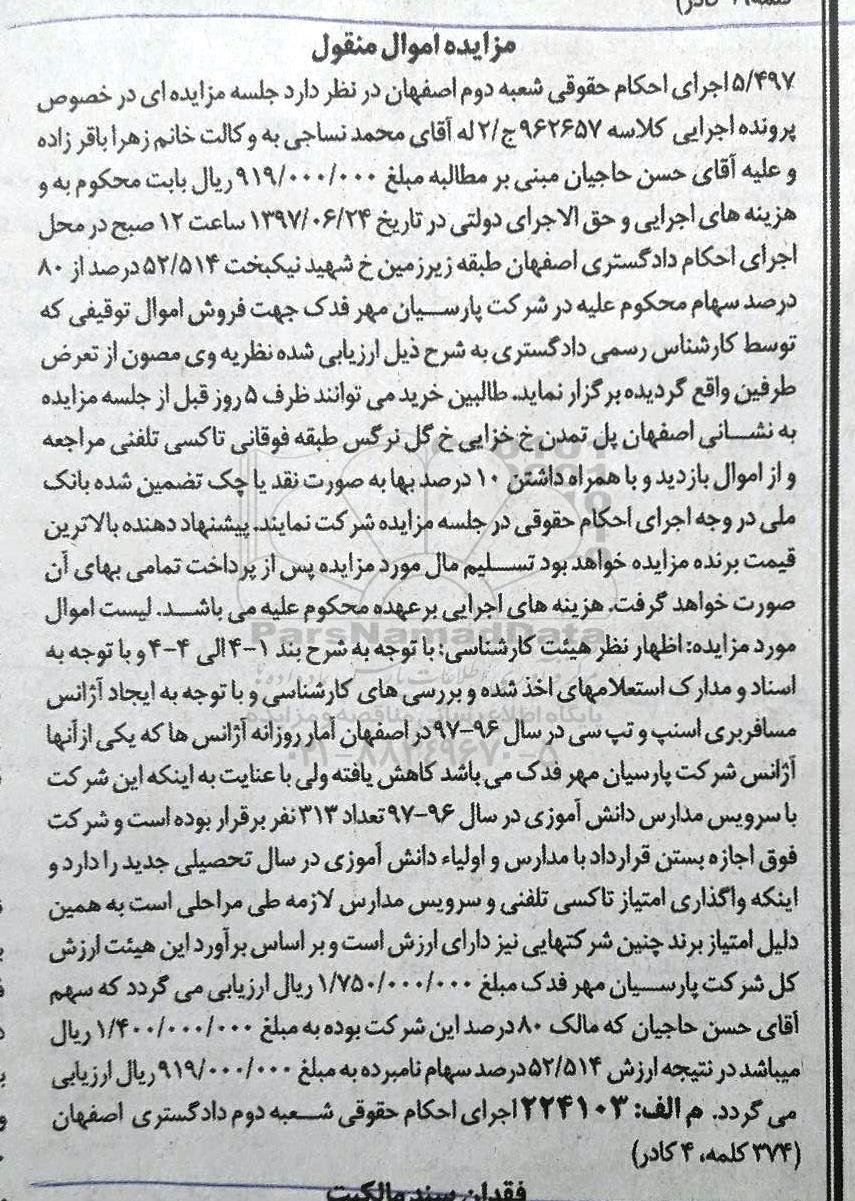 مزایده اموال منقول
۵/۴۹۷ اجرای احکام حقوقی شعبه دوم اصفهان در نظر دارد جلسه مزایده ای در خصوص
پرونده اجرایی کلاسه ۹۶۲۶۵۷ ج/۲ له آقای محمد نساجی به وکالت خانم زهرا باقر زاده
و علیه آقای حسن حاجیان مبنی بر مطالبه مبلغ ۹۱۹/۰۰۰/۰۰۰ ریال بابت محکوم به و
هزینه های اجرایی و حق الاجرای دولتی در تاریخ ۱۳۹۷/۰۶/۲۴ ساعت ۱۲ صبح در محل
اجرای احکام دادگستری اصفهان طبقه زیرزمین خ شهید نیکبخت ۵۲/۵۱۴ درصد از ۸۰
درصد سهام محکوم علیه در شرکت پارسیان مهر فدک جهت فروش اموال توقیفی که
توسط کارشناس رسمی دادگستری به شرح ذیل ارزیابی شده نظریه وی مصون از تعرض
طرفین واقع گردیده برگزار نماید. طالبین خرید می توانند ظرف ۵ روز قبل از جلسه مزایده
به نشانی اصفهان پل تمدن خ خزایی خ گل نرگس طبقه فوقانی تاکسی تلفنی مراجعه
و از اموال بازدید و با همراه داشتن ۱۰ درصد بها به صورت نقد یا چک تضمین شده بانک
ملی در وجه اجرای احکام حقوقی در جلسه مزایده شرکت نمایند. پیشنهاد دهنده بالاترین
قیمت برنده مزایده خواهد بود تسلیم مال مورد مزایده پس از پرداخت تمامی بهای آن
صورت خواهد گرفت. هزینه های اجرایی برعهده محکوم علیه می باشد. لیست اموال
مورد مزایده: اظهار نظر هیئت کارشناسی: با توجه به شرح بند ۱-۴ الی ۴-۴ و با توجه به
اسناد و مدارک استعلامهای اخذ شده و بررسی های کارشناسی و با توجه به ایجاد آژانس
مسافربری اسنپ و تپ سی در سال ۹۶-۹۷ در اصفهان آمار روزانه آژانس ها که یکی از آنها
آژانس شرکت پارسیان مهر فدک می باشد کاهش یافته ولی با عنایت به اینکه این شرکت
با سرویس مدارس دانش آموزی در سال ۹۶-۹۷ تعداد ۳۱۳ نفر برقرار بوده است و شرکت
فوق اجازه بستن قرارداد با مدارس و اولیاء دانش آموزی در سال تحصیلی جدید را دارد و
اینکه واگذاری امتیاز تاکسی تلفنی و سرویس مدارس لازمه طی مراحلی است به همین
دلیل امتیاز برند چنین شرکتهایی نیز دارای ارزش است و بر اساس برآورد این هیئت ارزش
کل شرکت پارسیان مهر فدک مبلغ ۱/۷۵۰/۰۰۰/۰۰۰ ریال ارزیابی می گردد که سهم
آقای حسن حاجیان که مالک ۸۰ درصد این شرکت بوده به مبلغ ۱/۴۰۰/۰۰۰/۰۰۰ ریال
میباشد در نتیجه ارزش ۵۲/۵۱۴ درصد سهام نامبرده به مبلغ ۹۱۹/۰۰۰/۰۰۰ ریال ارزیابی
می گردد. م الف: ۲۲۴۱۰۳ اجرای احکام حقوقی شعبه دوم دادگستری اصفهان
(۳۷۴ کلمه، ۴ کادر)
فقدان سند مالکیت
ParsNamadData